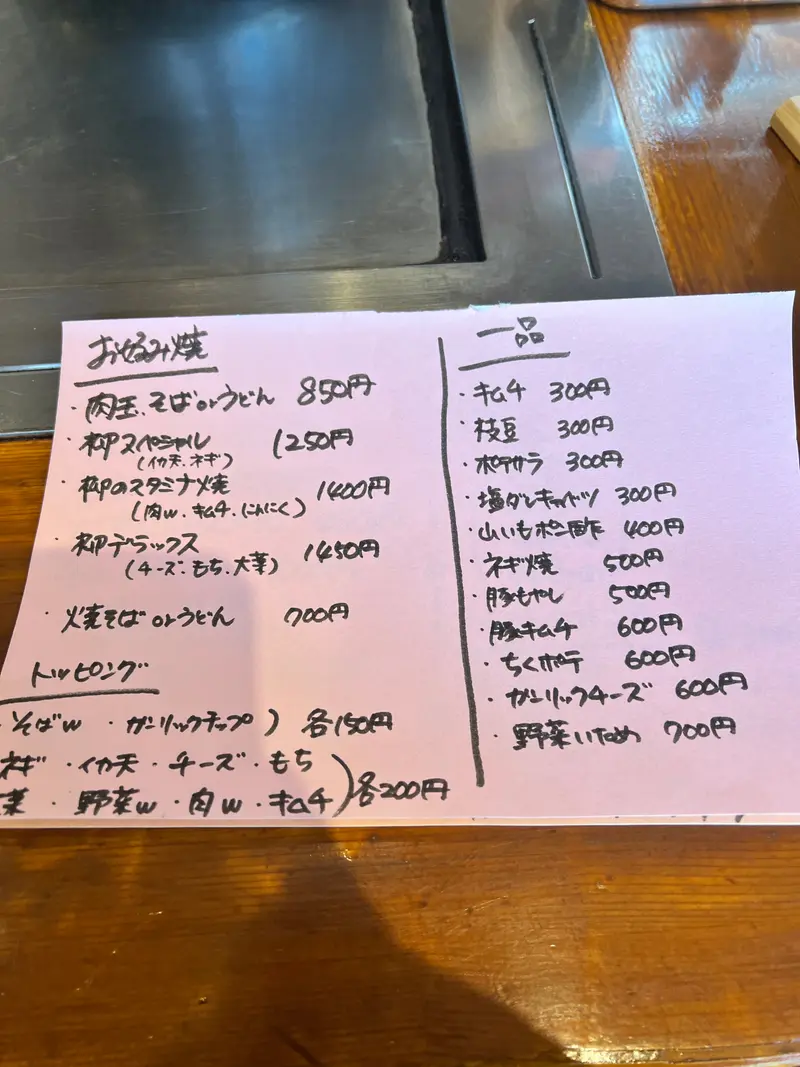 お好み焼
・肉玉、そばorうどん 850円
・柳スペシャル 1250円
(イカ天、ネギ)
・柳のスタミナ焼 1400円
(肉w・キムチ・にんにく)
・柳デラックス 1450円
(チーズ・もち・大葉)
・焼そばorうどん 700円
トッピング
・そばw ・ガーリックチップ) 各150円
ネギ ・イカ天・チーズ・もち
葉 ・野菜w・肉w・キムチ) 各200円
一品
・キムチ 300円
・枝豆 300円
・ポテサラ 300円
・塩ダレキャベツ 300円
・山いもポン酢 400円
・ネギ焼 500円
・豚もやし 500円
・豚キムチ 600円
・ちくポテ 600円
・ガーリックチーズ 600円
・野菜いため 700円